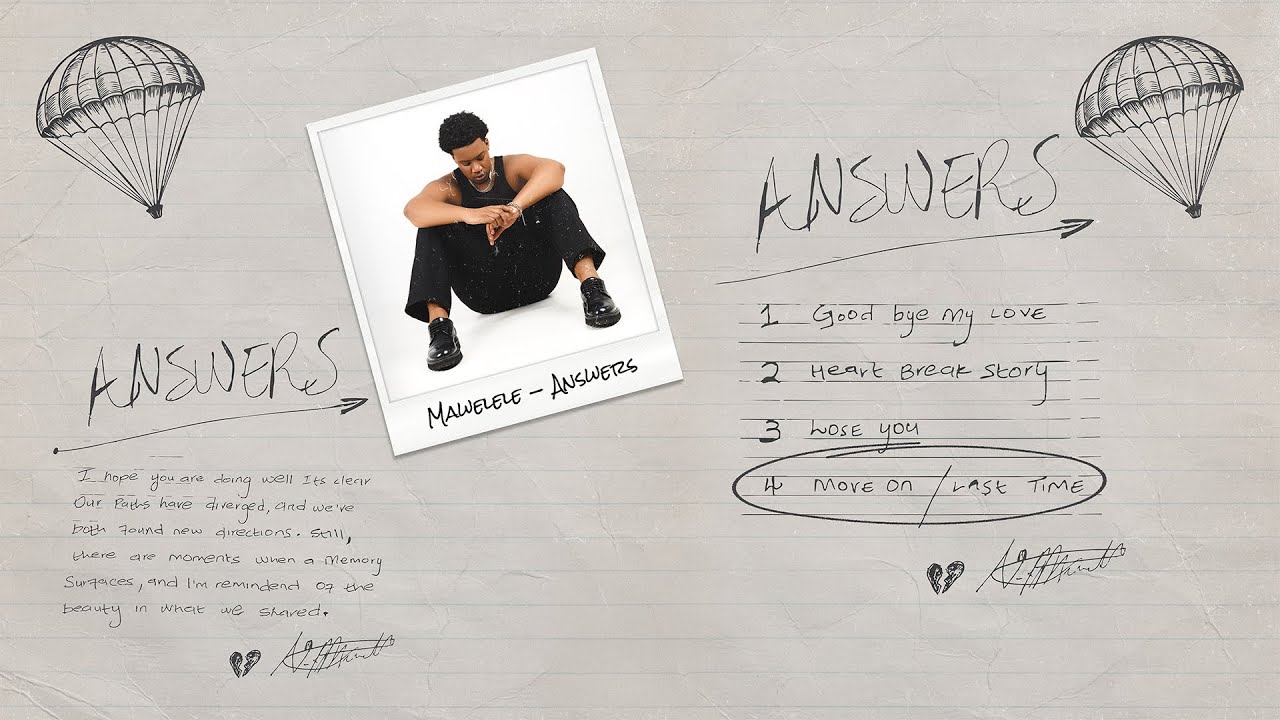 ANSWERS
I hope you are doing well Its clear
Our Paths have diverged, and we've
both found new directions. Still,
there are moments when a Memory
Surfaces, and I'm remindend of the
beauty in what we shared.
MAWELELE - ANSWERS
ANSWERS
1 Good bye My LOVE
2 Heart Break Story
3 LOSE YOU
4 MOVE ON / LAST TIME